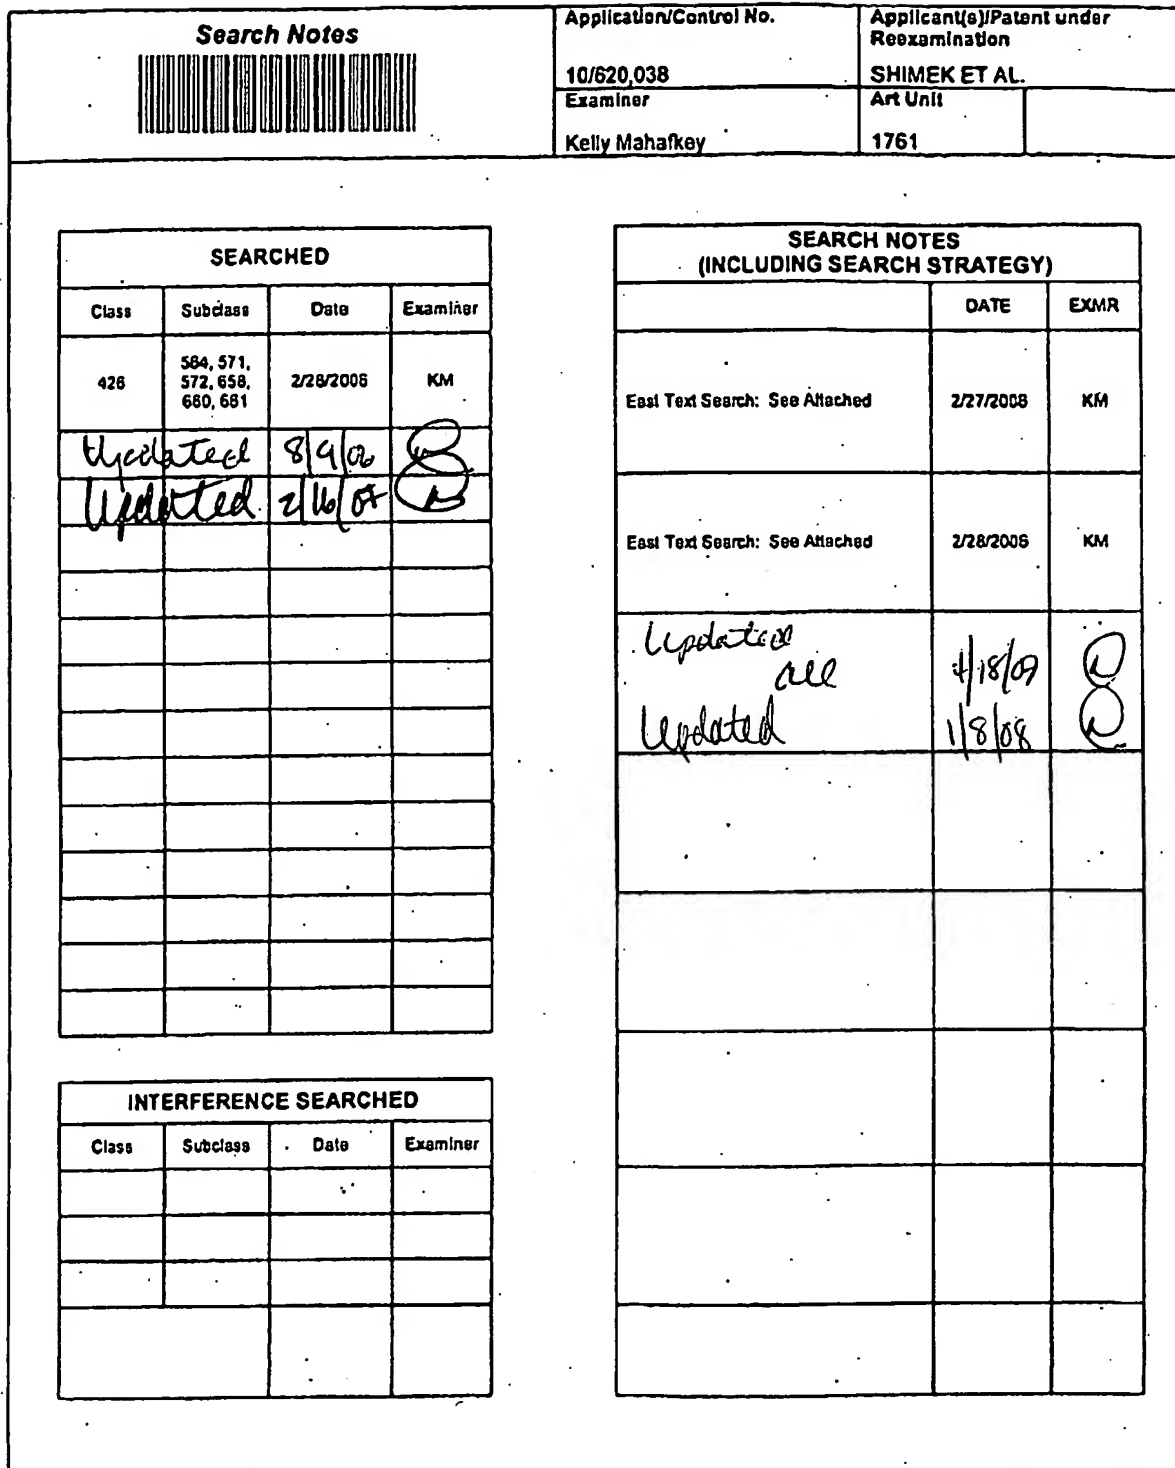 Search Notes
Application/Control No.
10/620,038
Applicant(s)/Patent under
Reexamination
SHIMEK ET AL.
Examiner
Kelly Mahafkey
Art Unit
1761
SEARCHED
Class Subclass Date Examiner
426 564, 571,
572, 658,
660, 661 2/28/2006 KM
Updated 8/9/06
Updated 2/16/07
INTERFERENCE SEARCHED
Class Subclass Date Examiner
SEARCH NOTES
(INCLUDING SEARCH STRATEGY)
DATE EXMR
East Text Search: See Attached 2/27/2006 KM
East Text Search: See Attached 2/28/2006 KM
Updated
all /18/07
Updated 1/8/08